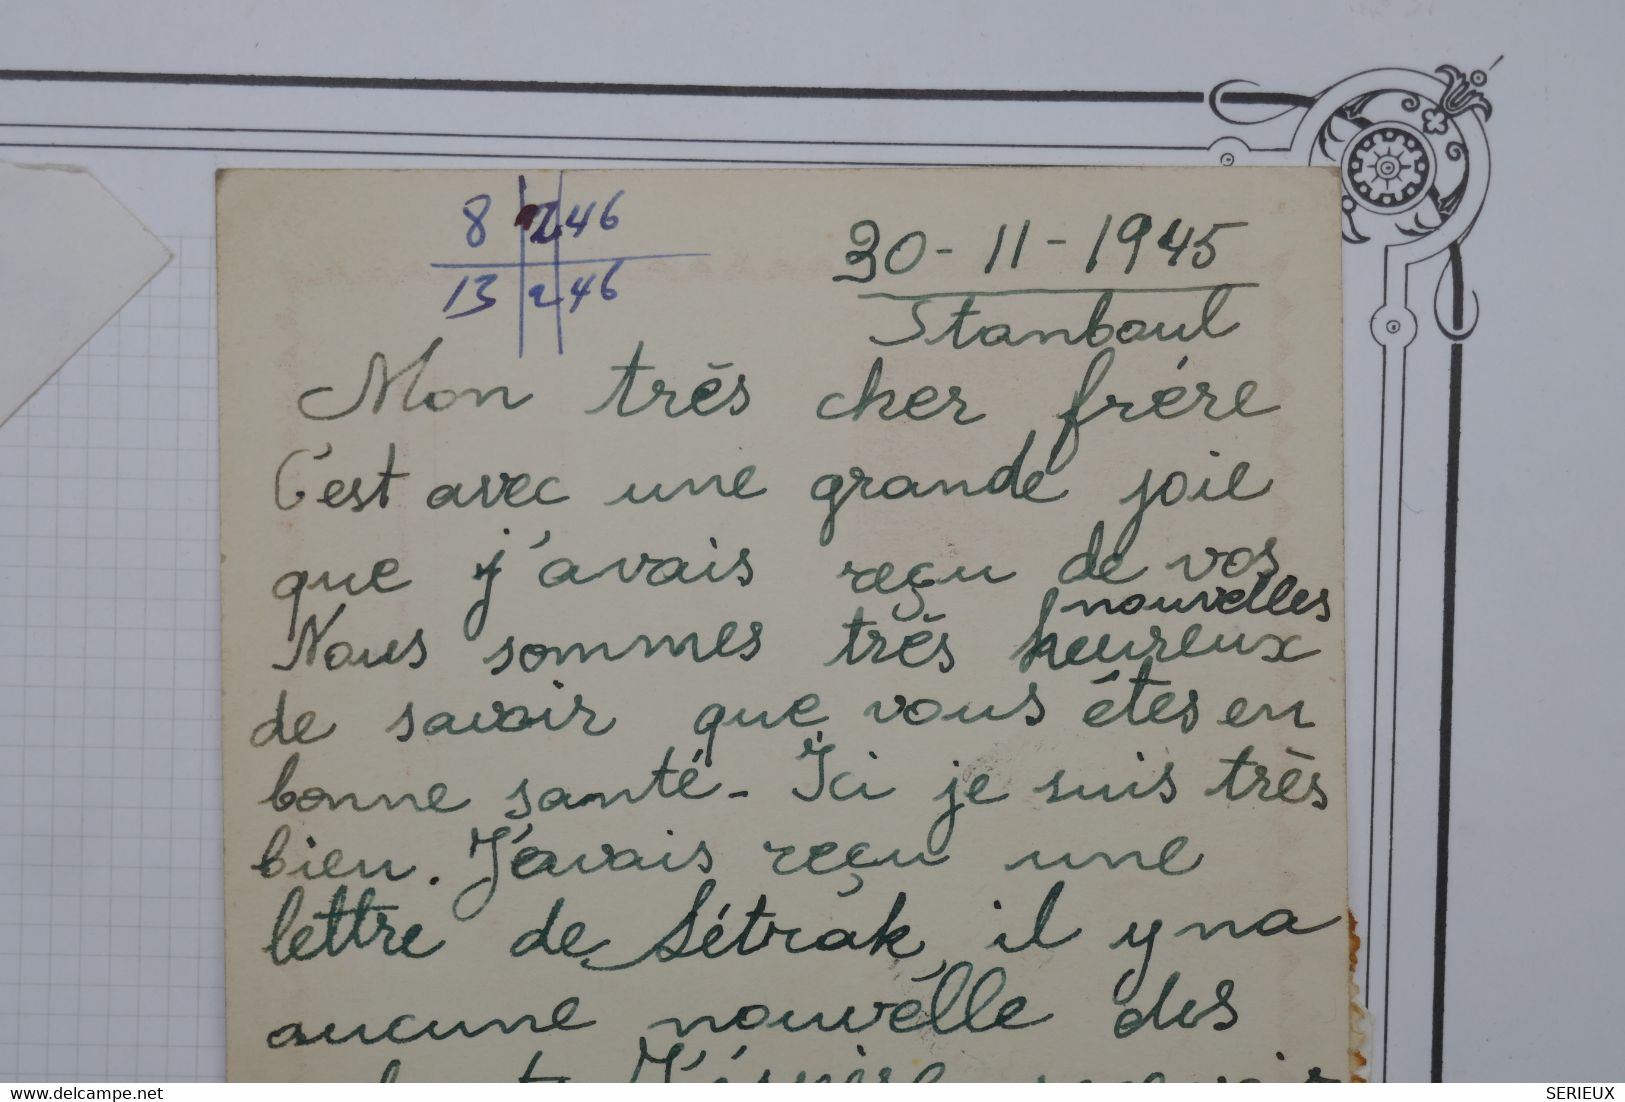 8 2 46
13 2 46
30-11-1945
Stanboul
Mon très cher frére
C'est avec une grande joie
que j'avais reçu de vos
nouvelles
Nous sommes très heureux
de savoir que vous étes en
bonne santé - Ici je suis très
bien. J'avais reçu une
lettre de Sétrak, il y na
aucune nouvélle des
delcampe.net
SERIEUX